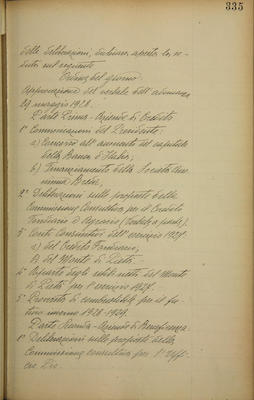 335
delle deliberazioni, dichiara aperta la se-
duta sul seguente
Ordine del giorno:
Approvazione del verbale dell'adunanza
29 maggio 1928.
Parte Prima - Azienda di Credito
1° Comunicazioni del Presidente:
a) Concorso all'aumento del capitale
della Banca d'Italia;
b) Finanziamento della Società Ano-
nima
2° Deliberazioni sulle proposte della
Commissione Consultiva per il Credito
Fondiario e Agrario
3° Conti Consuntivi dell'esercizio 1927:
a) del Credito Fondiario;
b) del Monte di Pietà.
4° Riparto degli utili netti del Monte
di Pietà per l'esercizio 1927.
5° Provvista di combustibile per il fu-
turo inverno 1928-1929.
Parte Seconda - Azienda di Beneficenza.
1° Deliberazioni sulle proposte della
Commissione consultiva per l'Uffi-
cio Pio.